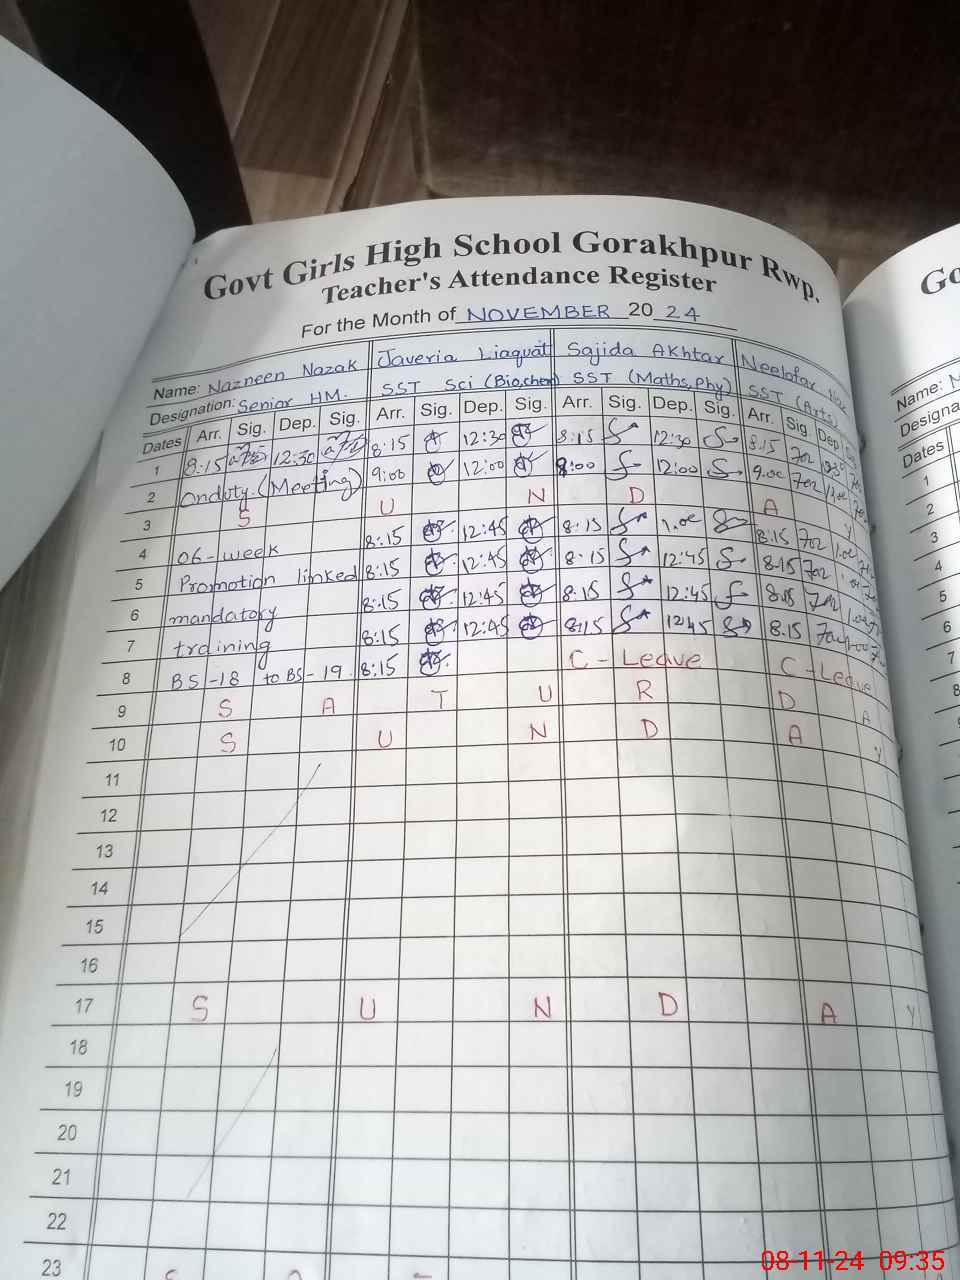 Govt Girls High School Gorakhpur Rwp.
Teacher's Attendance Register
For the Month of NOVEMBER 20 24
Name: Nazneen Nazak Javeria Liaquat Sajida Akhtar Neelofar
Designation: Senior HM. SST Sci (Bio,chem) SST (Maths,Phy) SST (Arts)
Dates Arr. Sig. Dep. Sig. Arr. Sig. Dep. Sig. Arr. Sig. Dep. Sig. Arr. Sig Dep
1 8:15 12:30 8:15 12:30 8:15 12:30 8.15
2 Onduty.(Meeting) 9:00 12:00 8:00 12:00 9.00
3 S U N D A Y
4 06-week 8:15 12:45 8:15 1.00 8.15 1.00
5 Promotion linked 8:15 12:45 8:15 12:45 8.15
6 mandatory 8:15 12:45 8:15 12:45 8.15
7 training 8:15 12:45 8:15 12:45 8.15
8 BS-18 to BS-19. 8:15 C-Leave C-Leave
9 S A T U R D A Y
10 S U N D A Y
11
12
13
14
15
16
17 S U N D A Y
18
19
20
21
22
23
Go
Name:
Designa
Dates
1
2
3
4
5
6
7
8
08-11-24 09:35